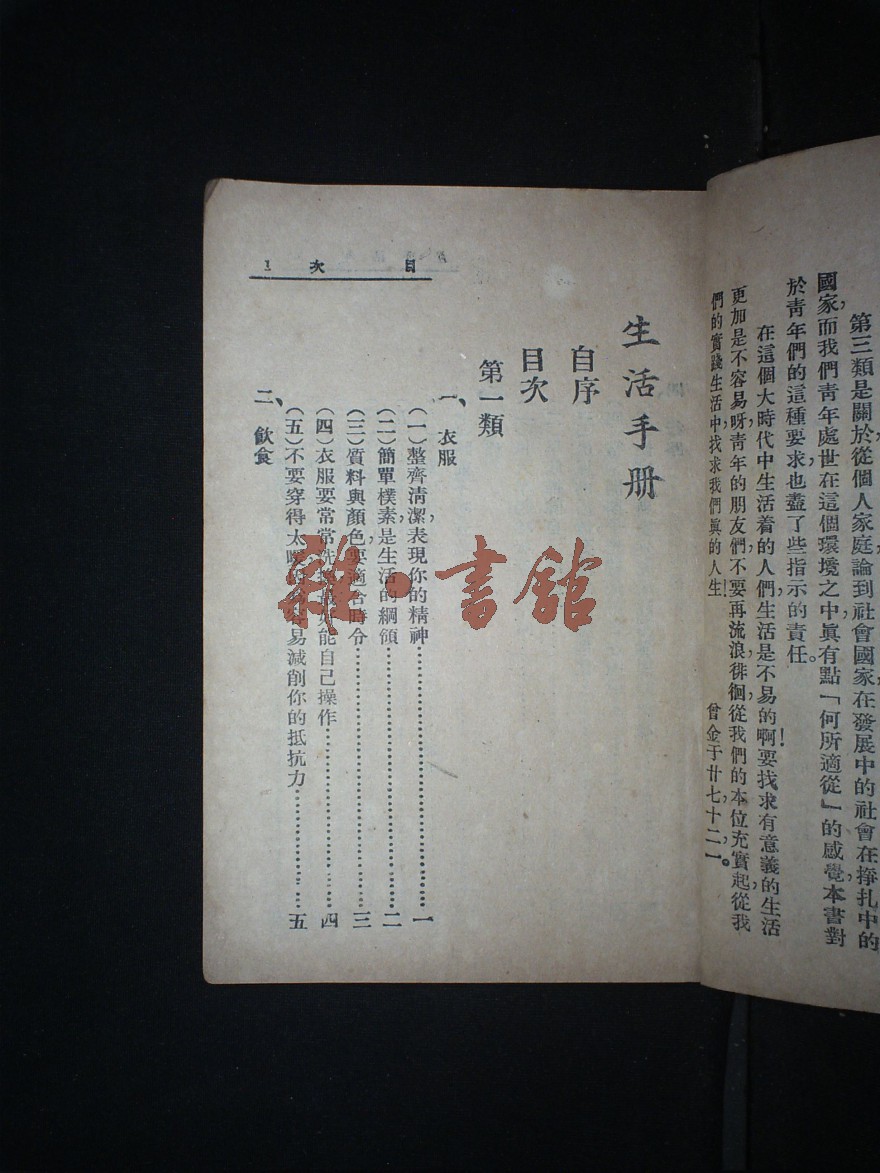 第三類是關於從個人家庭,論到社會國家,在發展中的社會,在掙扎中的
國家,而我們青年處世在這個環境之中,眞有點「何所適從」的感覺,本書對
於青年們的這種要求,也盡了些指示的責任。
在這個大時代中生活着的人們,生活是不易的啊!要找求有意義的生活,
更加是不容易呀,青年的朋友們,不要再流浪徘徊,從我們的本位充實起,從我
們的實踐生活中,找求我們眞的人生!
曾金于廿七,十二,一。
目 次 1
生活手册
自序
目次
第一類
一、衣服
(一)整齊清潔,表現你的精神……一
(二)簡單樸素,是生活的綱領……二
(三)質料與顏色,要適合時令……三
(四)衣服要常常洗能自己操作……四
(五)不要穿得太易減削你的抵抗力……五
二、飲食
雜·書館